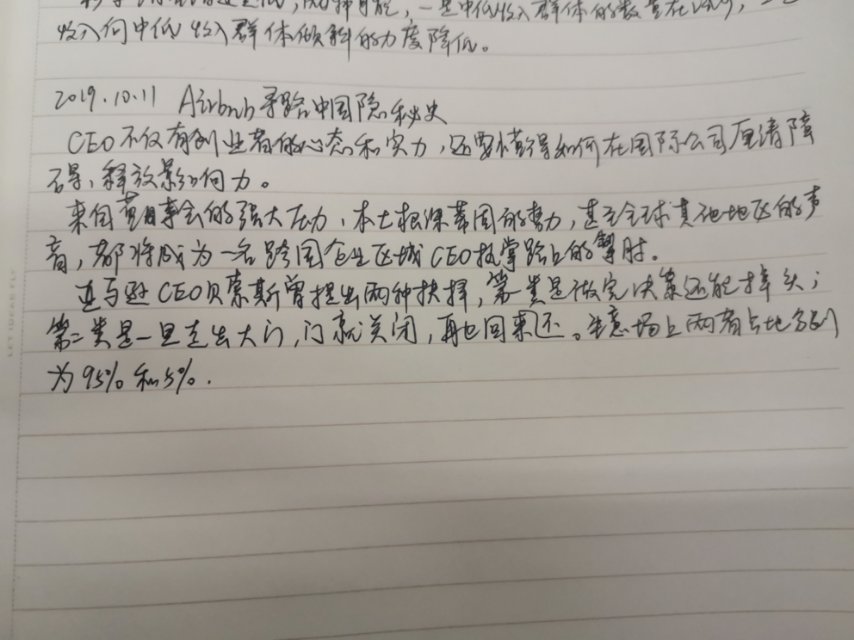 两种可能，一是中低收入群体的数量在减少，
收入向中低收入群体倾斜的力度降低。
2019.10.11 Airbnb寻路中国隐秘史
CEO不仅有创业者的心态和实力，还要懂得如何在国际公司厘清障
碍，释放影响力。
来自董事会的强大压力，本土根深蒂固的势力，甚至全球其他地区的声
音，都将成为一名跨国企业区域CEO执掌路上的掣肘。
亚马逊CEO贝索斯曾提出两种抉择，第一类是做完决策还能掉头；
第二类是一旦走出大门，门就关闭，再也回来还。生意场上两者占比分别
为95%和5%.
LET IDEAS FLY